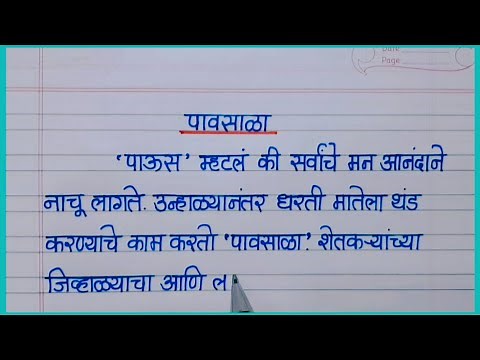 Date
Page
पावसाळा
'पाऊस' म्हटलं की सर्वांचे मन आनंदाने
नाचू लागते. उन्हाळ्यानंतर धरती मातेला थंड
करण्याचे काम करतो 'पावसाळा'. शेतकऱ्यांच्या
जिव्हाळ्याचा आणि ल